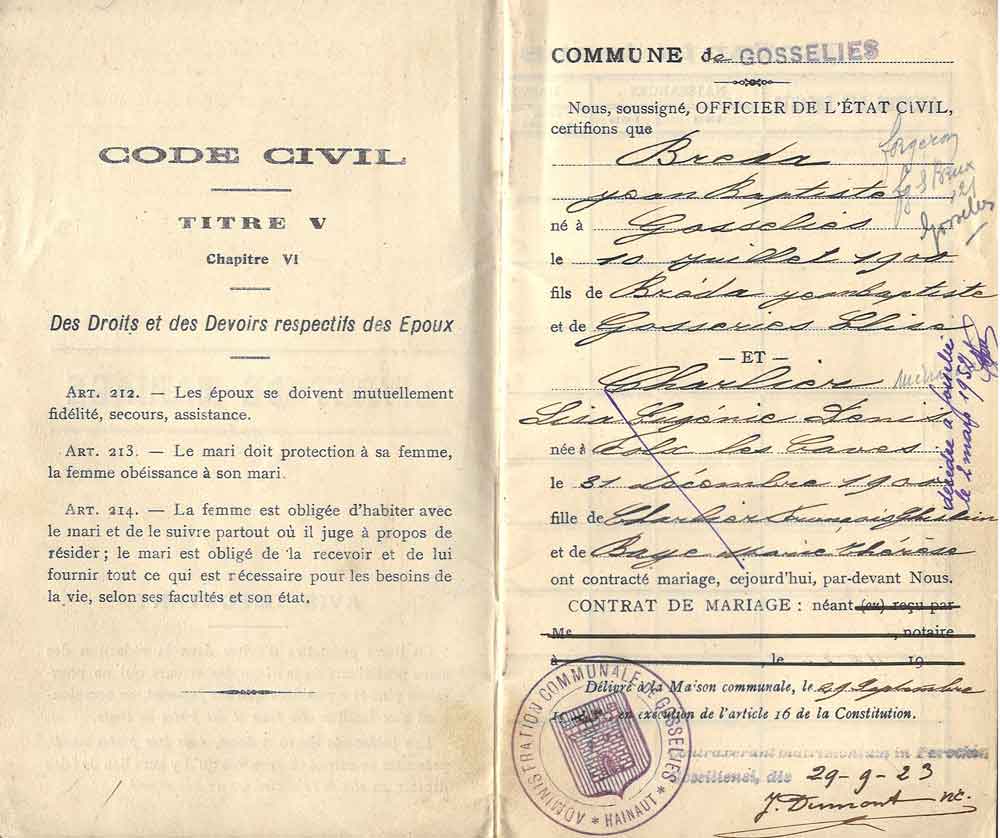 CODE CIVIL
TITRE V
Chapitre VI
Des Droits et des Devoirs respectifs des Epoux
ART. 212. — Les époux se doivent mutuellement
fidélité, secours, assistance.
ART. 213. — Le mari doit protection à sa femme,
la femme obéissance à son mari.
ART. 214. — La femme est obligée d'habiter avec
le mari et de le suivre partout où il juge à propos de
résider ; le mari est obligé de la recevoir et de lui
fournir tout ce qui est nécessaire pour les besoins de
la vie, selon ses facultés et son état.
COMMUNE de GOSSELIES
Nous, soussigné, OFFICIER DE L'ÉTAT CIVIL,
certifions que
Bréda
Jean Baptiste
né à Gosselies
le 10 juillet 1900
fils de Bréda Jean baptiste
et de Gosseries Elise
— ET —
Charlier
Lisa Eugénie Denis
née à les Caves
le 31 décembre 1900
fille de Charlier François Ghislain
et de Baye Marie thérèse
ont contracté mariage, cejourd'hui, par-devant Nous.
CONTRAT DE MARIAGE : néant (ou) reçu par
Me , notaire
à , le 19
Délivré à la Maison communale, le 29 Septembre
en exécution de l'article 16 de la Constitution.
Contraxerunt matrimonium in Parochia
die 29-9-23
J. Dumont
ADMINISTRATION COMMUNALE DE GOSSELIES
* HAINAUT *
forgeron
Gosselies
décédée à
le 2 mars 1952